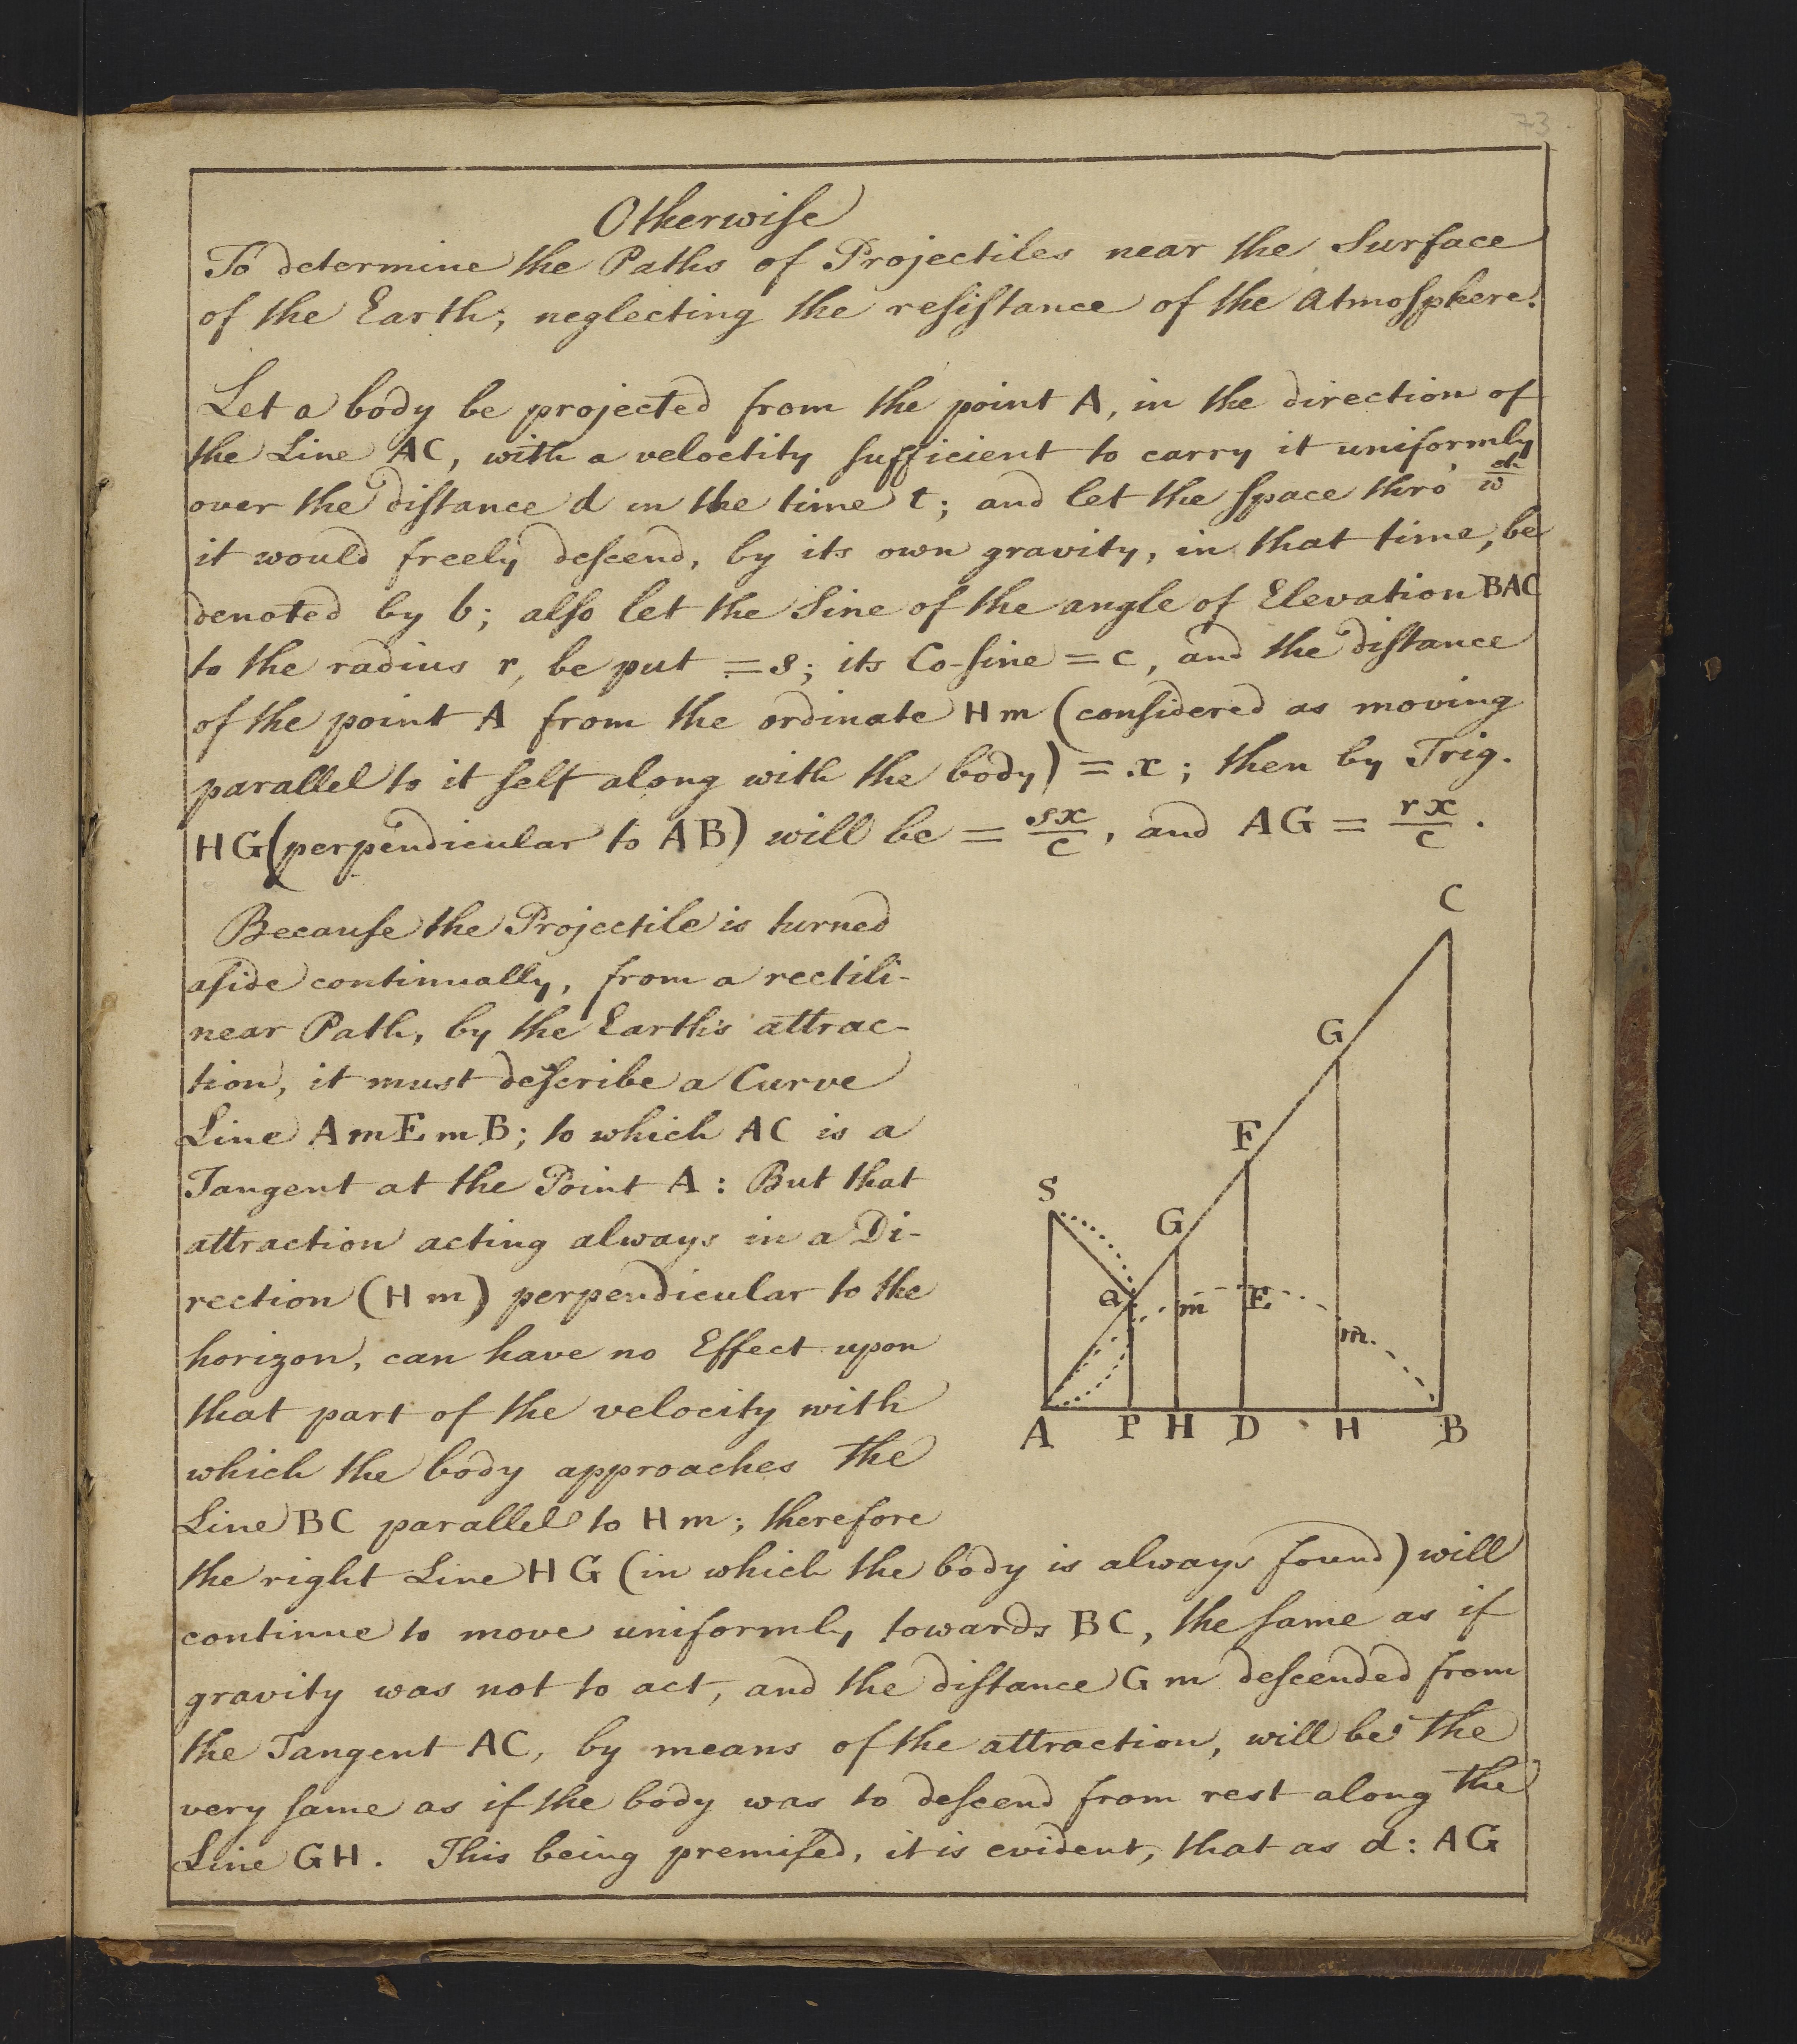 73
Otherwiſe
To determine the Paths of Projectiles near the Surface
of the Earth; neglecting the reſiſtance of the Atmoſphere.
Let a body be projected from the point A, in the direction of
the Line AC, with a veloctity ſufficient to carry it uniformly
over the diſtance d in the time t; and let the ſpace thro' wch
it would freely deſcend, by its own gravity, in that time, be
denoted by b; alſo let the Sine of the angle of Elevation BAC
to the radius r, be put = s; its Co-ſine = c, and the diſtance
of the point A from the ordinate Hm (conſidered as moving
parallel to it ſelf along with the body) = x; then by Trig.
HG (perpendicular to AB) will be = sx/c, and AG = rx/c.
Becauſe the Projectile is turned
aſide continually, from a rectili-
near Path, by the Earth's attrac-
tion, it must deſcribe a Curve
Line AmEmB; to which AC is a
Tangent at the Point A: But that
attraction acting always in a Di-
rection (Hm) perpendicular to the
horizon, can have no Effect upon
that part of the velocity with
which the body approaches the
Line BC parallel to Hm; therefore
the right Line HG (in which the body is always found) will
continue to move uniformly towards BC, the ſame as if
gravity was not to act, and the diſtance Gm deſcended from
the Tangent AC, by means of the attraction, will be the
very ſame as if the body was to deſcend from rest along the
Line GH. This being premiſed, it is evident, that as d: AG
C
G
F
S
G
a m E
m
A P H D H B